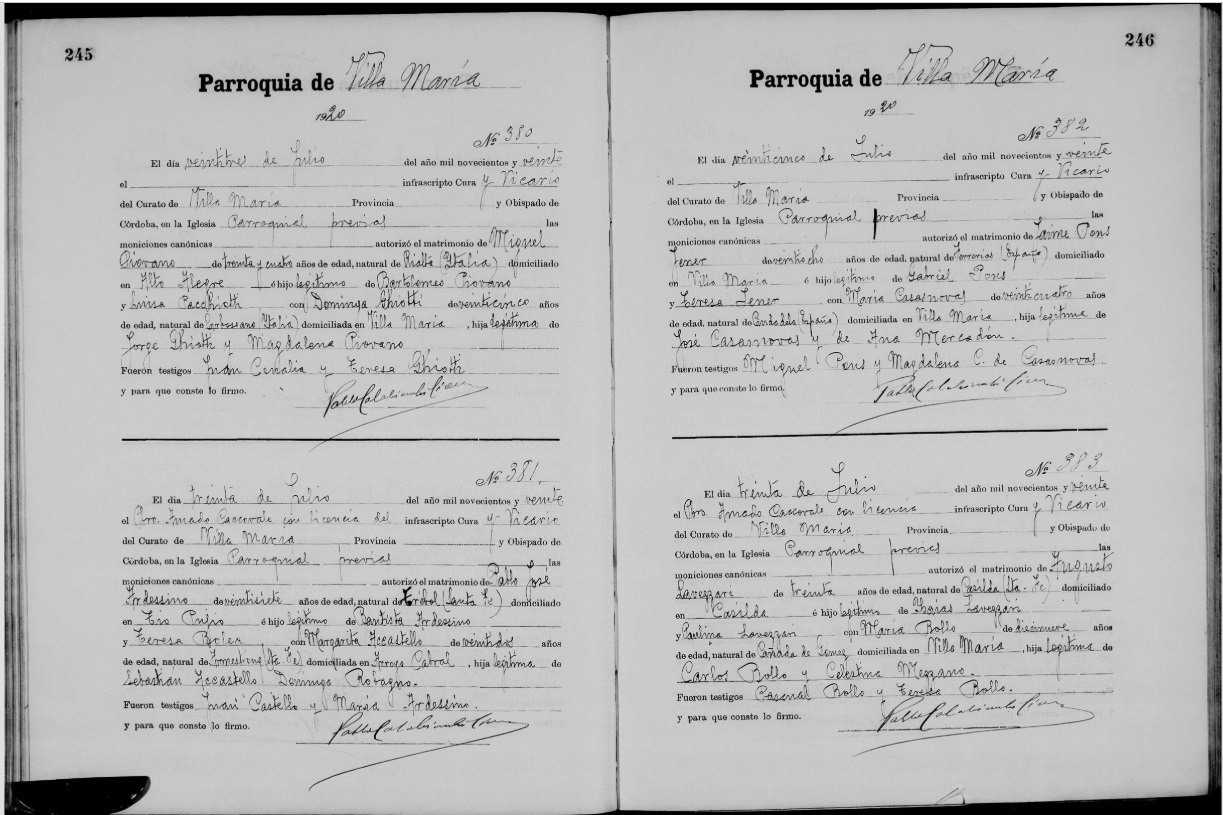 245
Parroquia de Villa María
1920
Nº 380
El día veintitres de Julio del año mil novecientos y veinte
el infrascripto Cura y Vicario
del Curato de Villa María Provincia y Obispado de
Córdoba, en la Iglesia Parroquial previas las
moniciones canónicas autorizó el matrimonio de Miguel
Piovano de treinta y cuatro años de edad, natural de Rialto (Italia) domiciliado
en Alto Alegre é hijo legítimo de Bartolomeo Piovano
y Luisa con Dominga Ghiotti de veinticinco años
de edad, natural de (Italia) domiciliada en Villa María, hija legítima de
Jorge Ghiotti y Magdalena Piovano
Fueron testigos Juan y Teresa Ghiotti
y para que conste lo firmo.
Nº 381
El día treinta de Julio del año mil novecientos y veinte
el Pbro. Amado con licencia del infrascripto Cura y Vicario
del Curato de Villa María Provincia y Obispado de
Córdoba, en la Iglesia Parroquial previas las
moniciones canónicas autorizó el matrimonio de Pablo José
Ardessino de veintisiete años de edad, natural de Trébol (Santa Fe) domiciliado
en Tío Pujio é hijo legítimo de Bautista Ardessino
y Teresa con Margarita Accastello de veintidos años
de edad, natural de (Sta. Fe) domiciliada en Arroyo Cabral, hija legítima de
Sebastián Accastello Dominga Robagno.
Fueron testigos Juan Castello y María Ardessino.
y para que conste lo firmo.
246
Parroquia de Villa María
1920
Nº 382
El día veinticinco de Julio del año mil novecientos y veinte
el infrascripto Cura y Vicario
del Curato de Villa María Provincia y Obispado de
Córdoba, en la Iglesia Parroquial previas las
moniciones canónicas autorizó el matrimonio de Jaime Pons
Jener de veintiocho años de edad, natural de Ferrerias (España) domiciliado
en Villa María é hijo legítimo de Gabriel Pons
y Teresa Jener con María Casasnovas de veinticuatro años
de edad, natural de (España) domiciliada en Villa María, hija legítima de
José Casasnovas y de Ana Mercadón.
Fueron testigos Miguel Pons y Magdalena C. de Casasnovas.
y para que conste lo firmo.
Nº 383
El día treinta de Julio del año mil novecientos y veinte
el Pbro. Amado con licencia infrascripto Cura y Vicario
del Curato de Villa María Provincia y Obispado de
Córdoba, en la Iglesia Parroquial previas las
moniciones canónicas autorizó el matrimonio de Augusto
Lavezzari de treinta años de edad, natural de Casilda (Sta. Fe) domiciliado
en Casilda é hijo legítimo de Isaías Lavezzari
y Paulina Lavezzari con María Bollo de diecinueve años
de edad, natural de Cañada de Gomez domiciliada en Villa María, hija legítima de
Carlos Bollo y Celestina Mezzano.
Fueron testigos Pascual Bollo y Teresa Bollo.
y para que conste lo firmo.